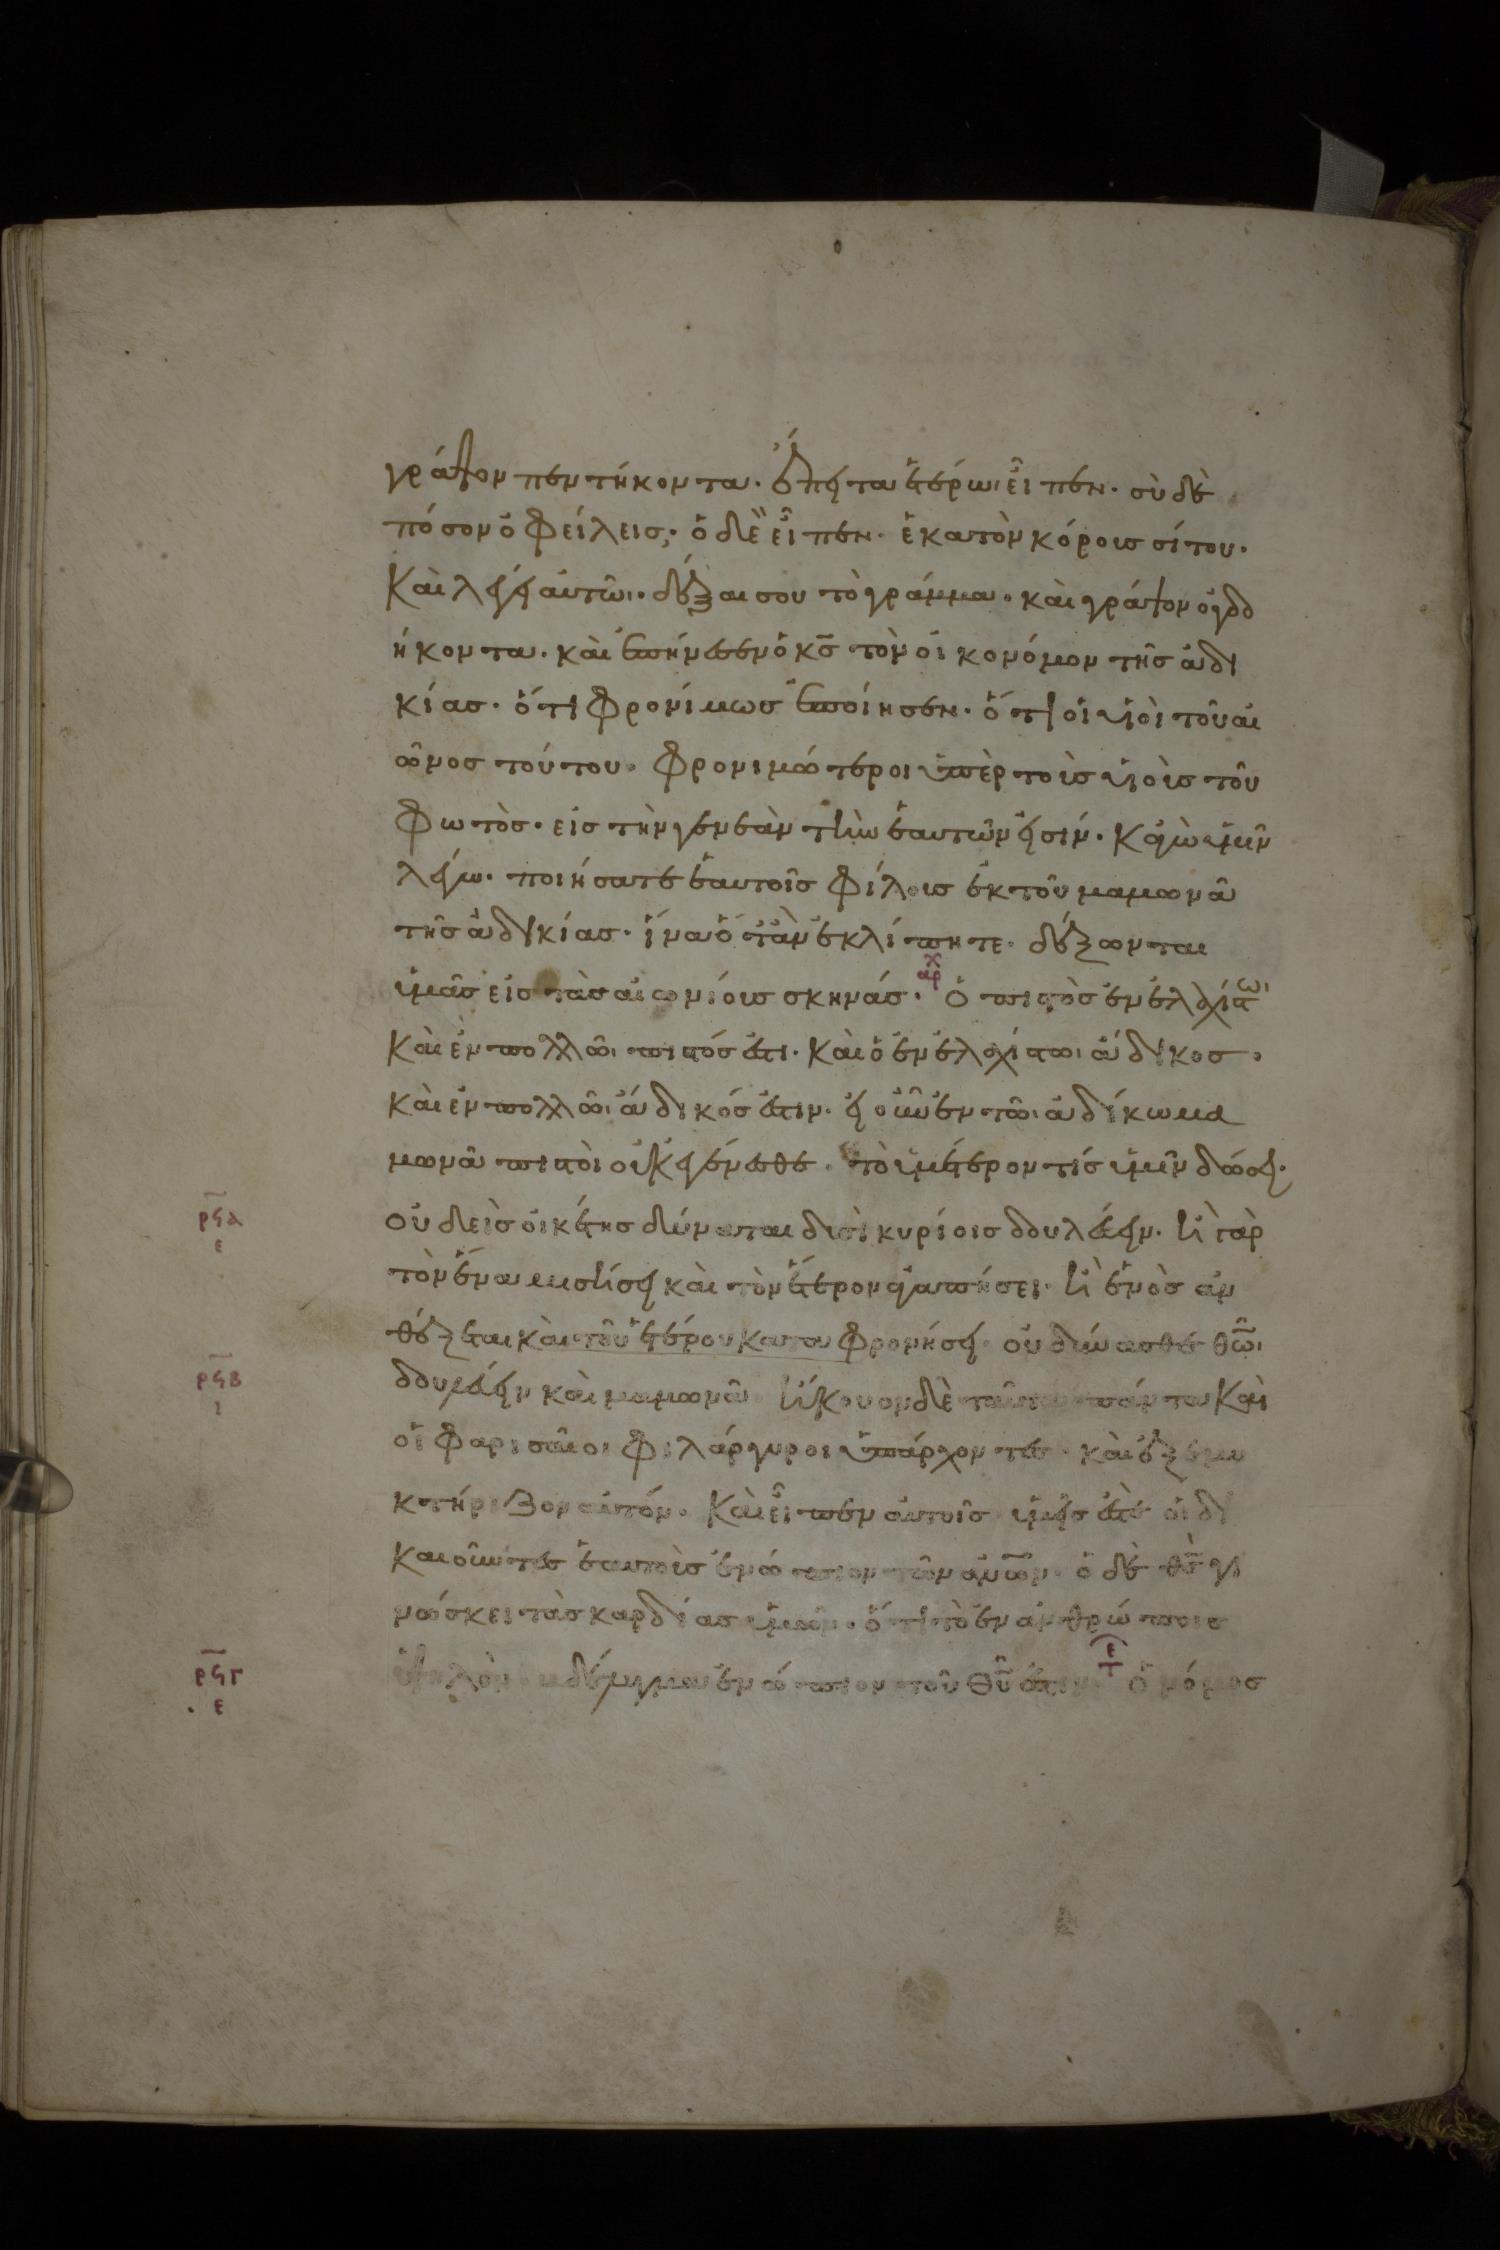 γράψον πεντήκοντα. ἔπειτα ἑτέρωι εἶπεν. σὺ δὲ
πόσον ὀφείλεις; ὁ δὲ εἶπεν. ἑκατὸν κόρους σίτου.
Καὶ λέγει αὐτῶι. δέξαι σου τὸ γράμμα. καὶ γράψον ὀγδο
ήκοντα. καὶ ἐπήνεσεν ὁ κ̅ς̅ τὸν οἰκονόμον τῆς ἀδι
κίας. ὅτι φρονίμως ἐποίησεν. ὅτι οἱ υἱοὶ τοῦ αἰ
ῶνος τούτου. φρονιμώτεροι ὑπὲρ τοὺς υἱοὺς τοῦ
φωτὸς. εἰς τὴν γενεὰν τὴν ἑαυτῶν εἰσίν. Κἀγὼ ὑμῖν
λέγω. ποιήσατε ἑαυτοῖς φίλους ἐκ τοῦ μαμωνᾶ
τῆς ἀδικίας. ἵνα ὅταν ἐκλίπητε. δέξωνται
ὑμᾶς εἰς τὰς αἰωνίους σκηνάς. αρχ ὁ πιστὸς ἐν ἐλαχίστωι
Καὶ ἐν πολλῶι πιστός ἐστι. Καὶ ὁ ἐν ἐλαχίστωι ἄδικος.
Καὶ ἐν πολλῶι ἄδικός ἐστιν. εἰ οὖν ἐν τῶι ἀδίκω μα
μωνᾶ πιστοὶ οὐκ ἐγένεσθε. τὸ ὑμέτερον τίς ὑμῖν δώσει.
ρϟα ε Οὐδεὶς οἰκέτης δύναται δυσὶ κυρίοις δουλεύειν. ἢ γὰρ
τὸν ἕνα μισήσει καὶ τὸν ἕτερον ἀγαπήσει. ἢ ἑνὸς ἀν
θέξεται καὶ τοῦ ἑτέρου καταφρονήσει. οὐ δύνασθε θ̅ῶ̅ι
ρϟβ ι δουλεύειν καὶ μαμωνᾶ ἤκουον δὲ ταῦτα πάντα Καὶ
οἱ φαρισαῖοι φιλάργυροι ὑπάρχοντες. καὶ ἐξεμυ
κτήριζον αὐτόν. Καὶ εἶπεν αὐτοῖς ὑμεῖς ἐστὲ οἱ δι
καιοῦντες ἑαυτοὺς ἐνώπιον τῶν α̅ν̅ω̅ν̅. ὁ δὲ θ̅ς̅ γι
νώσκει τὰς καρδίας ὑμῶν. ὅτι τὸ ἐν ἀνθρώποις
ρϟγ ε ὑψηλὸν. βδέλυγμα ἐνώπιον τοῦ θ̅υ̅ ἐστιν. τε ὁ νόμος